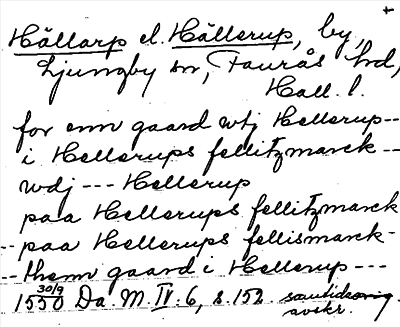 +
Hällarp el. Hällerup, by,
Ljungby sn, Faurås hd,
Hall. l.
for enn gaard wtj Hellerup --
i Hellerups fellitzmarck --
wdj --- Hellerup
paa Hellerups fellitzmarck
-- paa Hellerups fellismarck -
-- them gaard i Hellerup ---
30/9 1550 Da. M. IV. 6, s. 152. samtidsorig.
avskr.